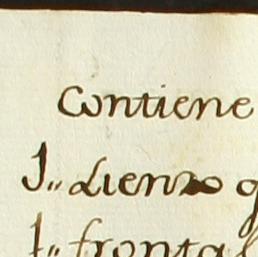 Contiene
1,, Lienzo q
1,, frontal